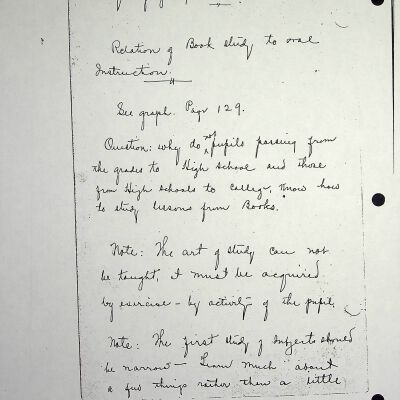 Relation of Book study to oral
Instruction.
See graph. Page 129.
Question: why do not pupils passing from
the grades to High school and those
from High schools to College, know how
to study lessons from Books.
Note: The art of study can not
be taught, it must be acquired
by exercise - by activity of the pupil.
Note: The first study of subjects should
be narrow - Learn much about
a few things rather then a little